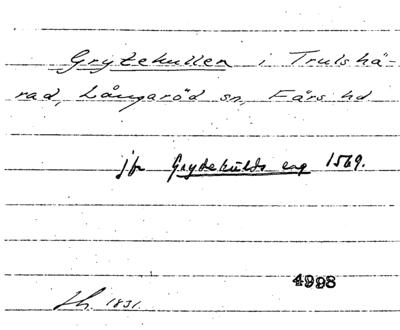 Grytekullen i Trulshä-
rad, Långaröd sn, Färs hd
jfr Grydekulds eng 1569.
4998
1831.